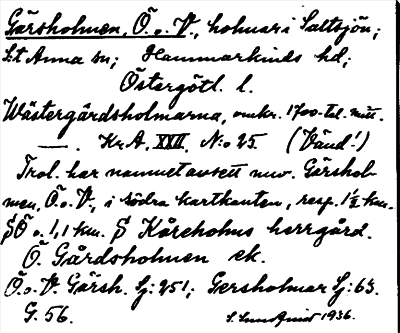 Gårsholmen, Ö. o. V., holmar i Saltsjön;
S:t Anna sn; Hammarkinds hd;
Östergötl. l.
Wästergårdsholmarna, omkr. 1700-tal. mitt.
—. Kr. A. XXII. N:o 25. (Vänd!)
Trol. har namnet avsett nuv. Gårshol-
men, Ö. o. V., i södra kartkanten, resp. 1½ km.
SÖ o. 1,1 km. S Kåreholms herrgård.
Ö. Gårdsholmen ek.
Ö. o. V. Gårsh. Sj: 251; Gersholmar Sj: 63.
G. 56. 1936.